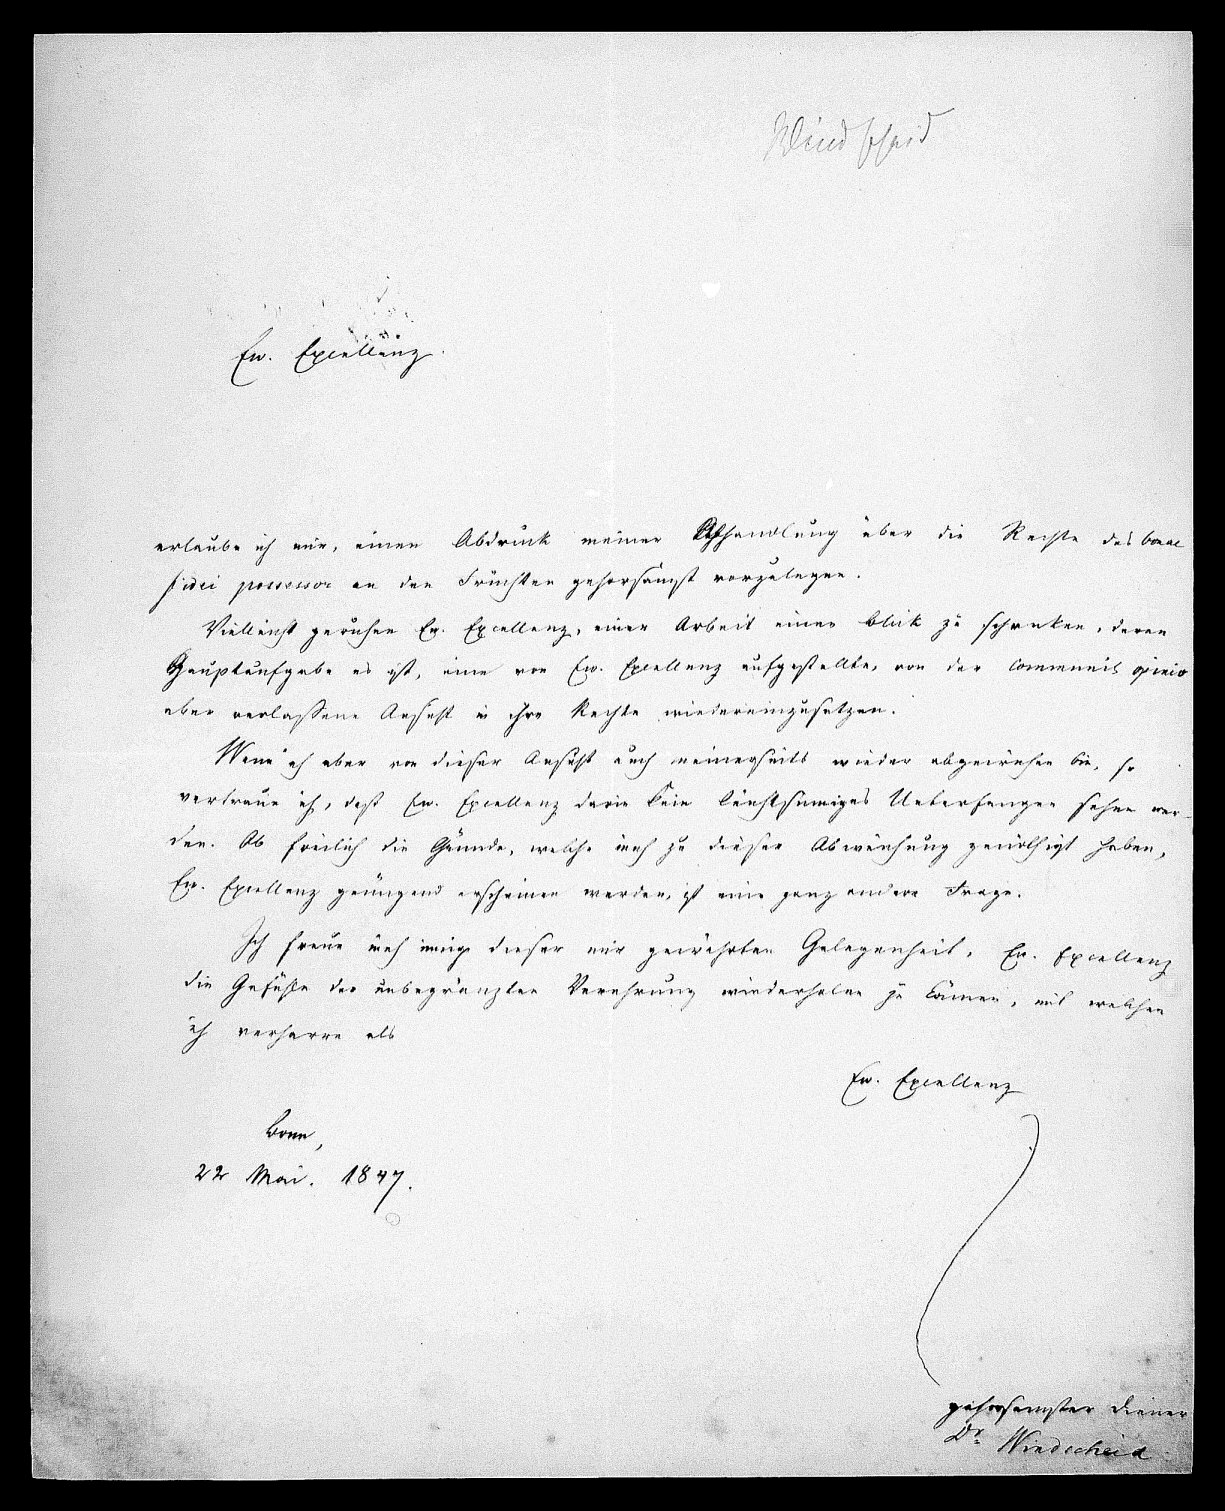 Windscheid
Ew. Excellenz
erlaube ich mir, einen Abdruck meiner Abhandlung über die Rechte des bonae
fidei possessor an den Früchten gehorsamst vorzulegen.
Vielleicht geruhen Ew. Excellenz, einer Arbeit einen Blick zu schenken, deren
Hauptaufgabe es ist, eine von Ew. Excellenz aufgestellte, von der communis opinio
aber verlassene Ansicht in ihre Rechte wiedereinzusetzen.
Wenn ich aber von dieser Ansicht auch meinerseits wieder abgewichen bin, so
vertraue ich, daß Ew. Excellenz darin kein leichtsinniges Unterfangen sehen wer-
den. Ob freilich die Gründe, welche mich zu dieser Abweichung genöthigt haben,
Ew. Excellenz genügend erscheinen werden, ist eine ganz andere Frage.
Ich freue mich innig dieser mir gewährten Gelegenheit, Ew. Excellenz
die Gefühle der unbegränzten Verehrung wiederholen zu können, mit welchen
ich verharre als
Ew. Excellenz
Bonn,
22 Mai. 1847.
gehorsamster Diener
Dr Windscheid